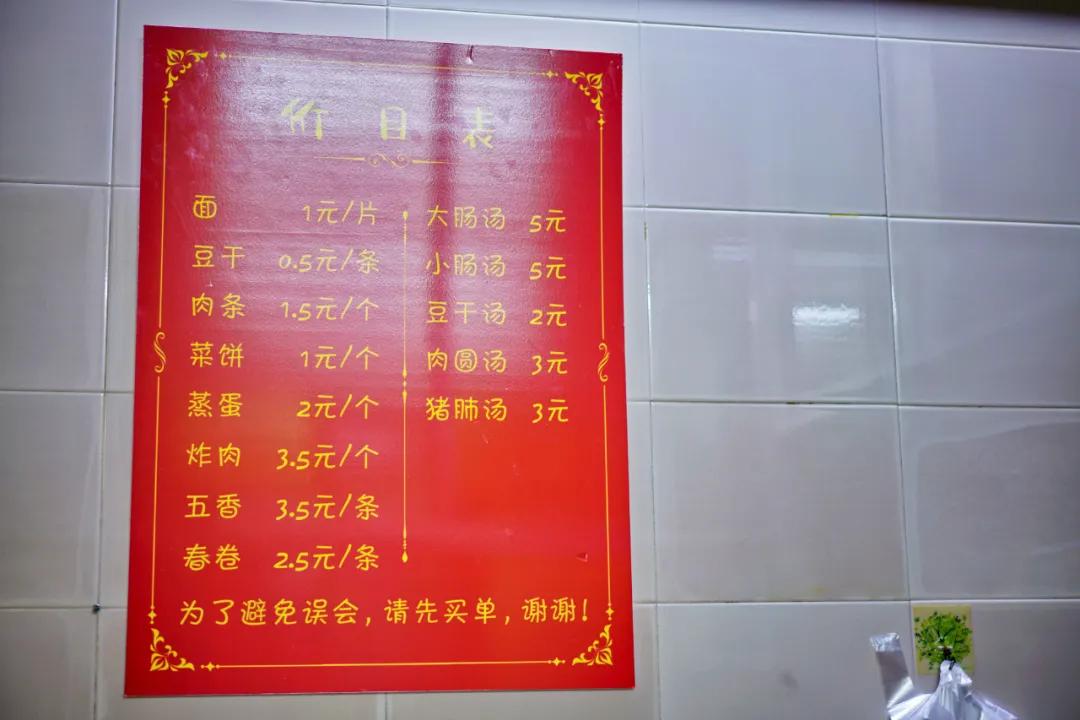 价目表
面 1元/片
豆干 0.5元/条
肉条 1.5元/个
菜饼 1元/个
蒸蛋 2元/个
炸肉 3.5元/个
五香 3.5元/条
春卷 2.5元/条
大肠汤 5元
小肠汤 5元
豆干汤 2元
肉圆汤 3元
猪肺汤 3元
为了避免误会,请先买单,谢谢!